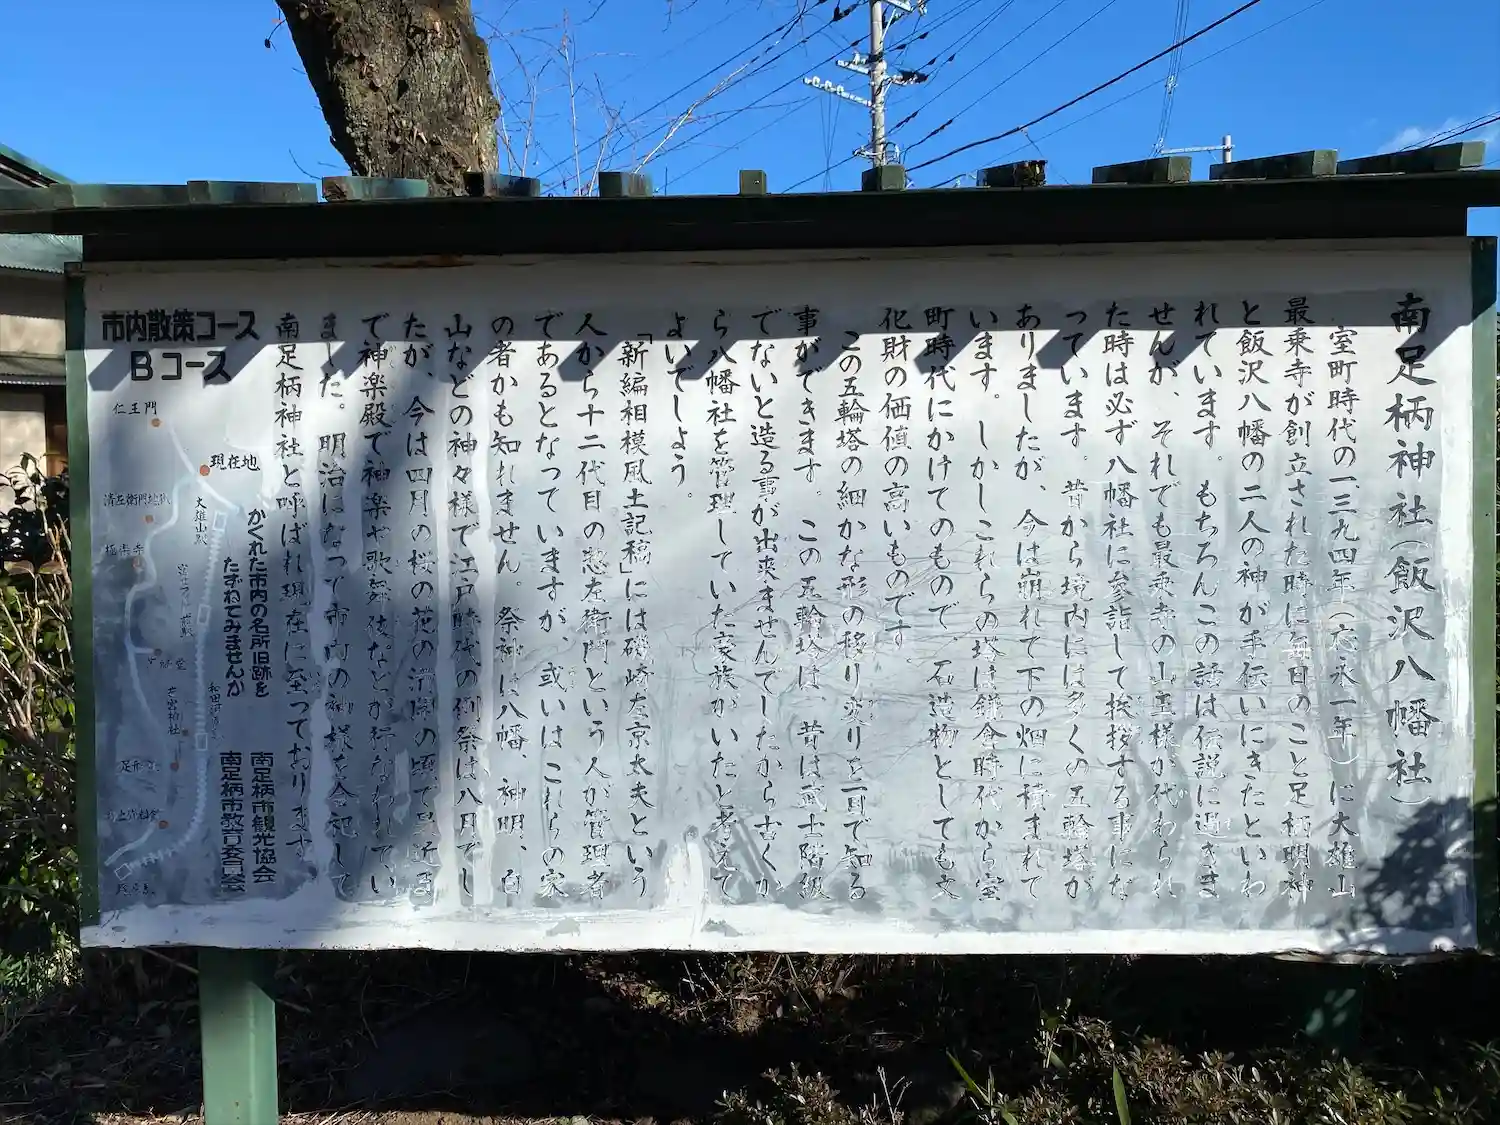 南足柄神社(飯沢八幡社)
室町時代の一三九四年(応永一年)に大雄山
最乗寺が創立された時に毎日のこと足柄明神
と飯沢八幡の二人の神が手伝いにきたといわ
れています。もちろんこの話は伝説に過ぎま
せんが、それでも最乗寺の山王様が代わられ
た時は必ず八幡社に参詣して挨拶する事にな
っています。昔から境内には多くの五輪塔が
ありましたが、今は崩れて下の畑に積まれて
います。しかしこれらの塔は鎌倉時代から室
町時代にかけてのもので、石造物としても文
化財の価値の高いものです。
この五輪塔の細かな形の移り変りを一目で知る
事ができます。この五輪塔は、昔は武士階級
でないと造る事が出来ませんでしたから古くか
ら八幡社を管理していた豪族がいたと考えて
よいでしょう。
「新編相模風土記稿」には磯崎左京太夫という
人から十二代目の惣左衛門という人が管理者
であるとなっていますが、或いはこれらの家
の者かも知れません。祭神は八幡、神明、白
山などの神々様で江戸時代の例祭は八月でし
たが、今は四月の桜の花の満開の頃で
で神楽殿で神楽や歌舞伎などが行なわれてい
ました。明治になって市内の神様を合祀して
南足柄神社と呼ばれ現在に至っております
市内散策コース
Bコース
仁王門
現在地
清左衛門地獄
大雄山駅
かくれた市内の名所旧跡を
たずねてみませんか
南足柄市観光協会
南足柄市教育委員会